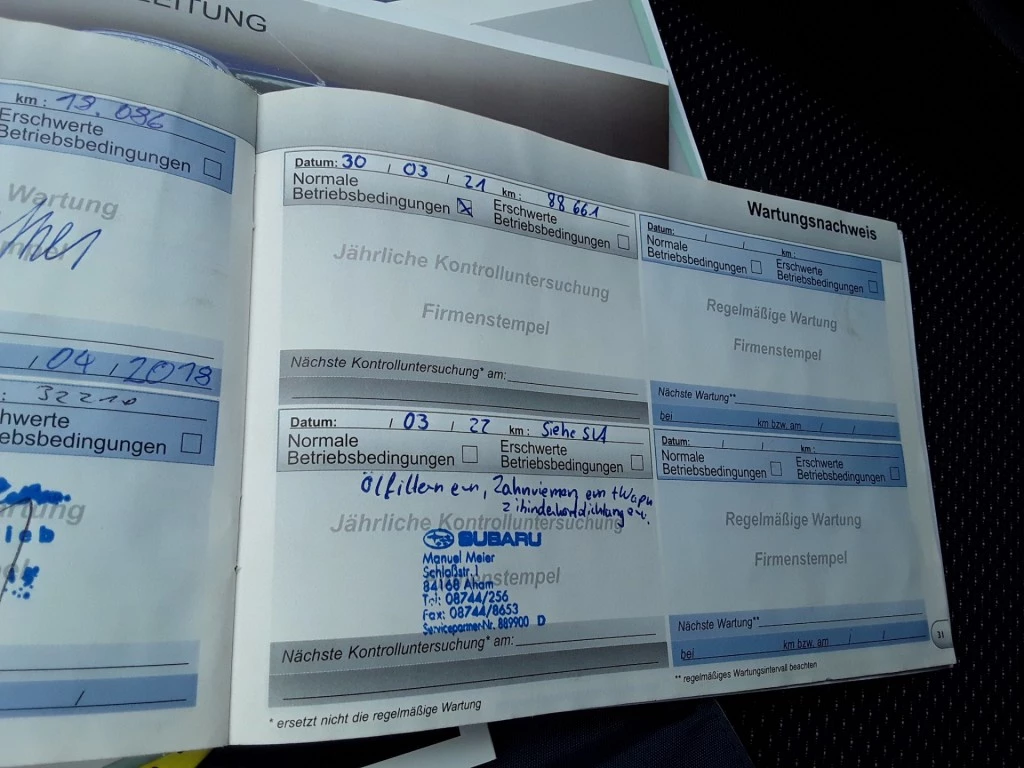 LEITUNG
km : 19.086
Erschwerte
Betriebsbedingungen
Wartung
04 / 2018
32210
Erschwerte
Betriebsbedingungen
Wartungsnachweis
Datum: 30 / 03 / 21 km : 88 661
Normale
Betriebsbedingungen
Erschwerte
Betriebsbedingungen
Jährliche Kontrolluntersuchung
Firmenstempel
Nächste Kontrolluntersuchung* am:
Datum: / 03 / 22 km : Siehe
Normale
Betriebsbedingungen
Erschwerte
Betriebsbedingungen
Ölfiltern ern, Zahnriemen ern + Wapu
Jährliche Kontrolluntersuchung
SUBARU
Manuel Meier
Schloßstr. 1
Firmenstempel
84168 Aham
Tel: 08744/256
Fax: 08744/8653
Servicepartner-Nr. 889900 D
Nächste Kontrolluntersuchung* am:
* ersetzt nicht die regelmäßige Wartung
Datum: / / km :
Normale
Betriebsbedingungen
Erschwerte
Betriebsbedingungen
Regelmäßige Wartung
Firmenstempel
Nächste Wartung**
bei km bzw. am / /
Datum: / / km :
Normale
Betriebsbedingungen
Erschwerte
Betriebsbedingungen
Regelmäßige Wartung
Firmenstempel
Nächste Wartung**
bei km bzw. am / /
** regelmäßiges Wartungsintervall beachten
31